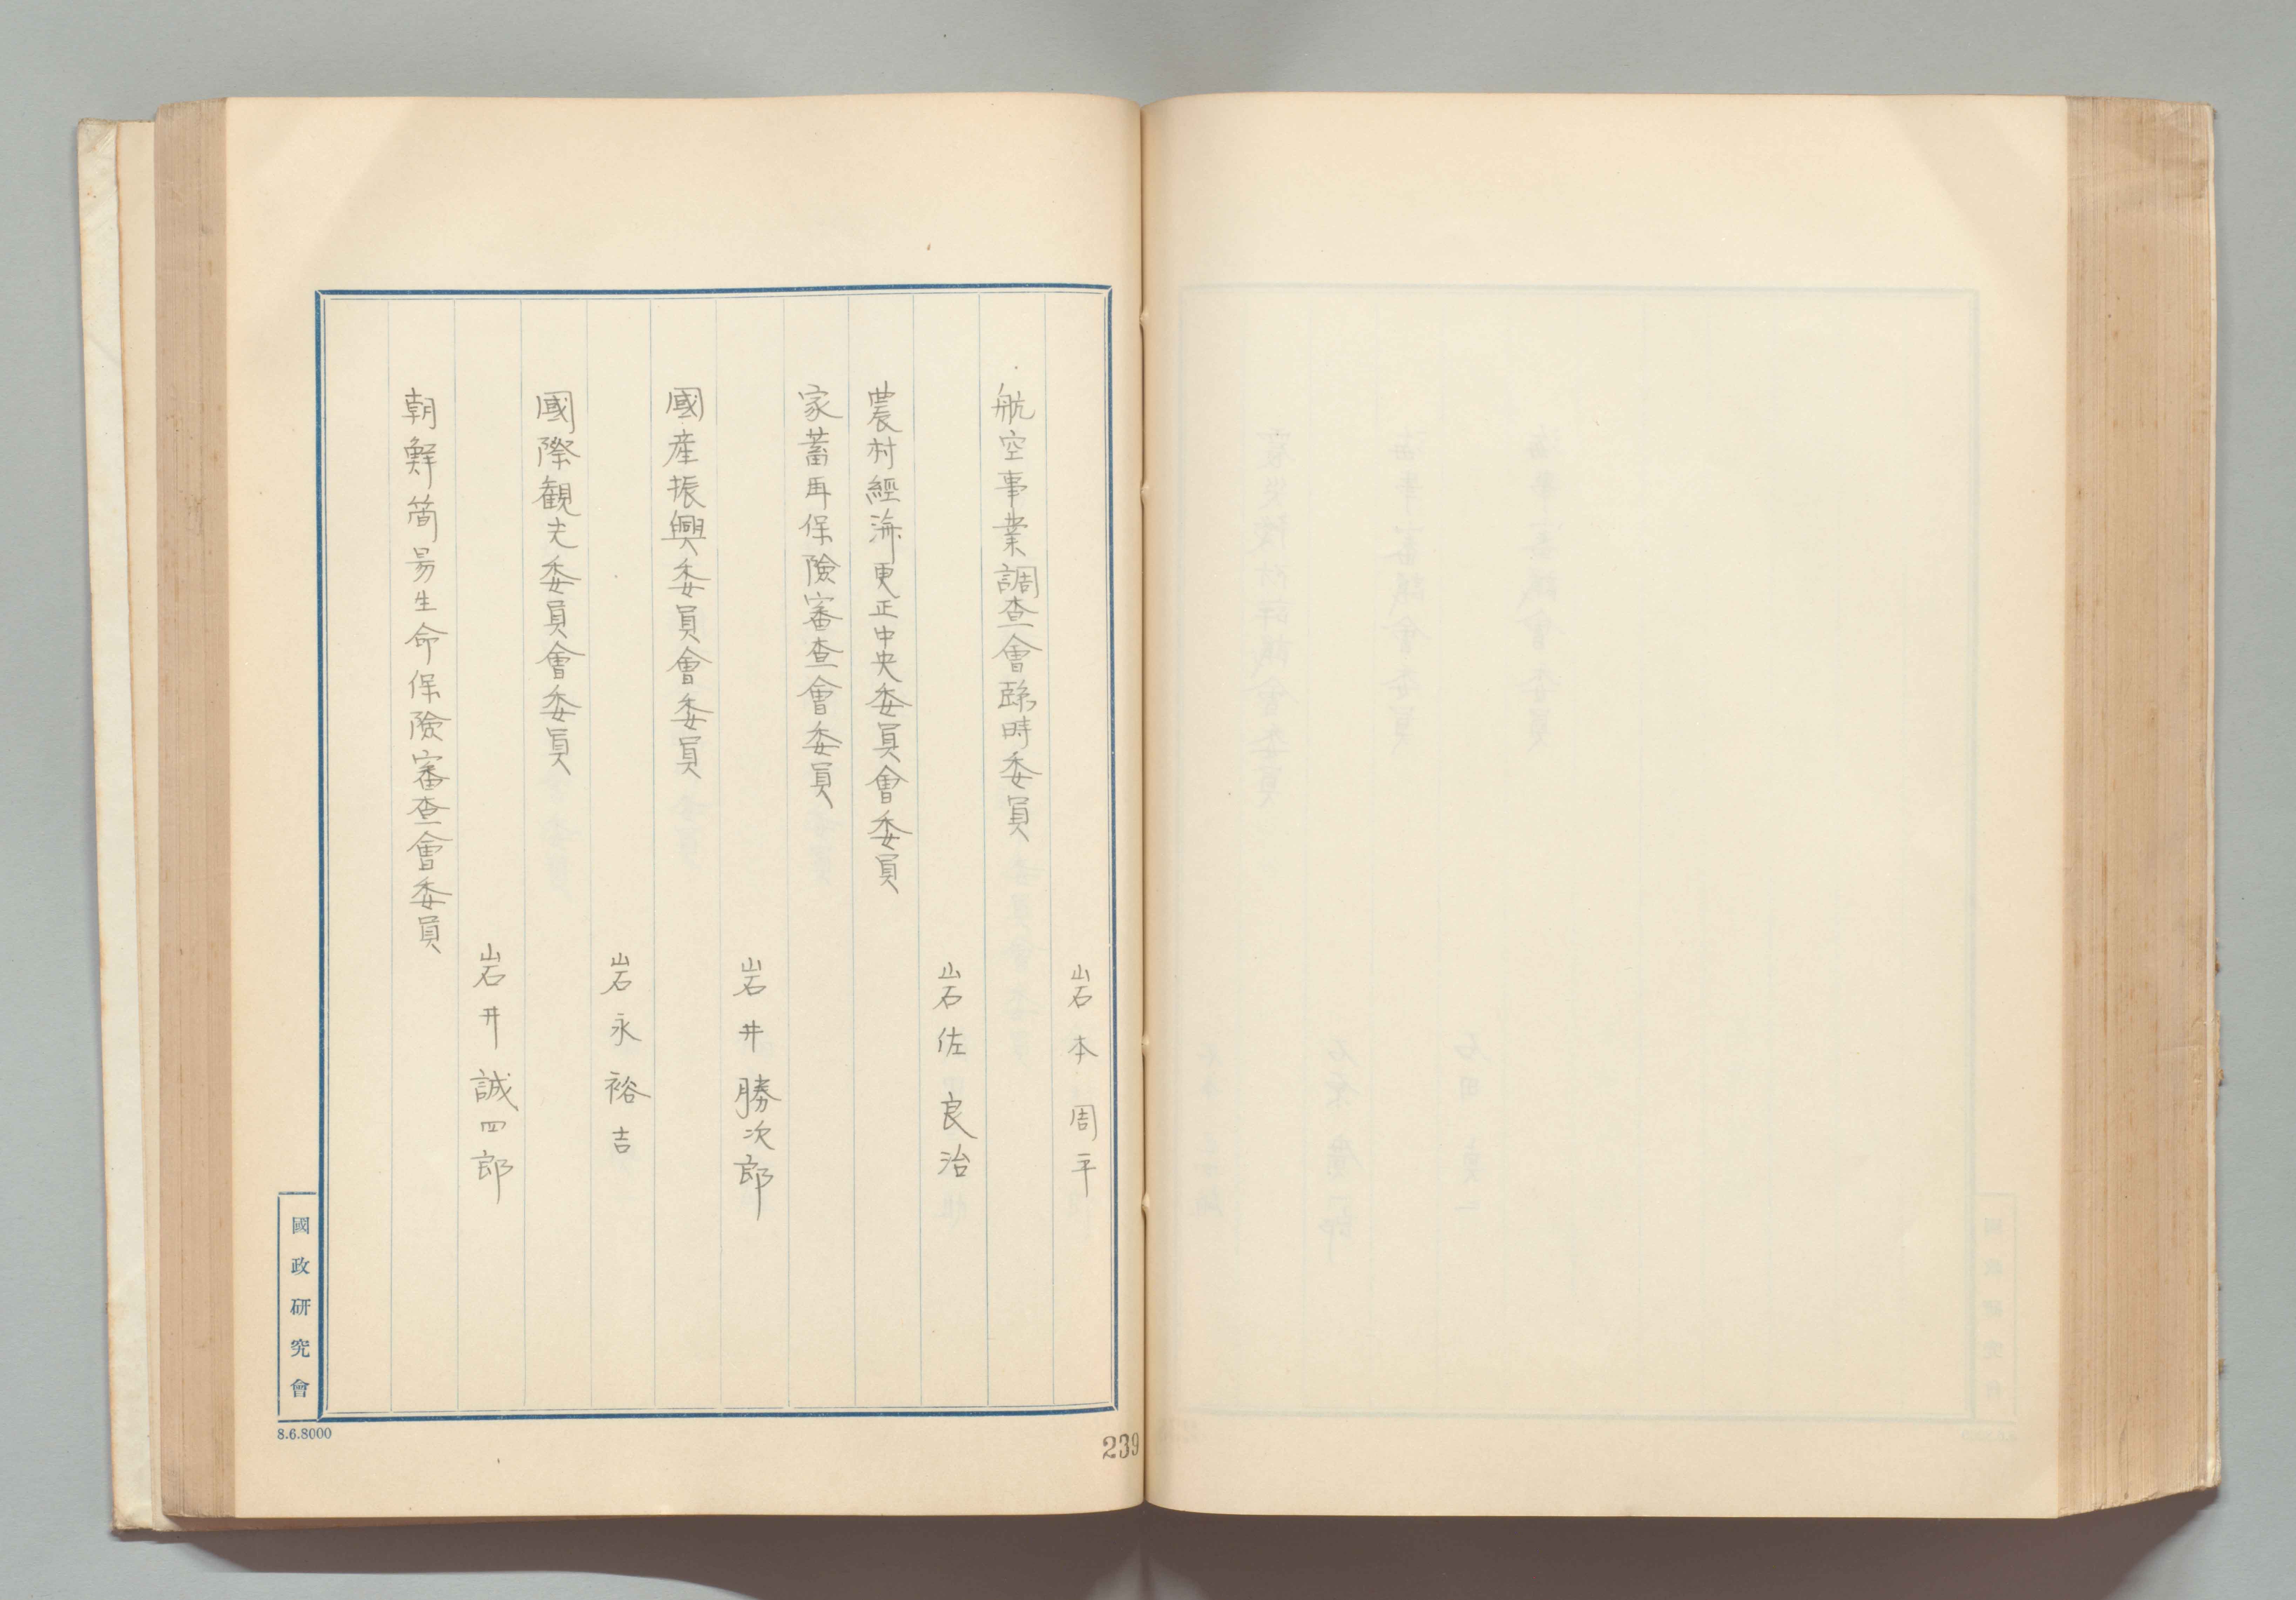 岩本周平
航空事業調査會臨時委員
岩佐良治
農村經濟更正中央委員會委員
家蓄再保險審査會委員
岩井勝次郎
國産振興委員會委員
岩永裕吉
國際観光委員會委員
岩井誠四郎
朝鮮簡易生命保險審査會委員
國政研究會
8.6.8000
239